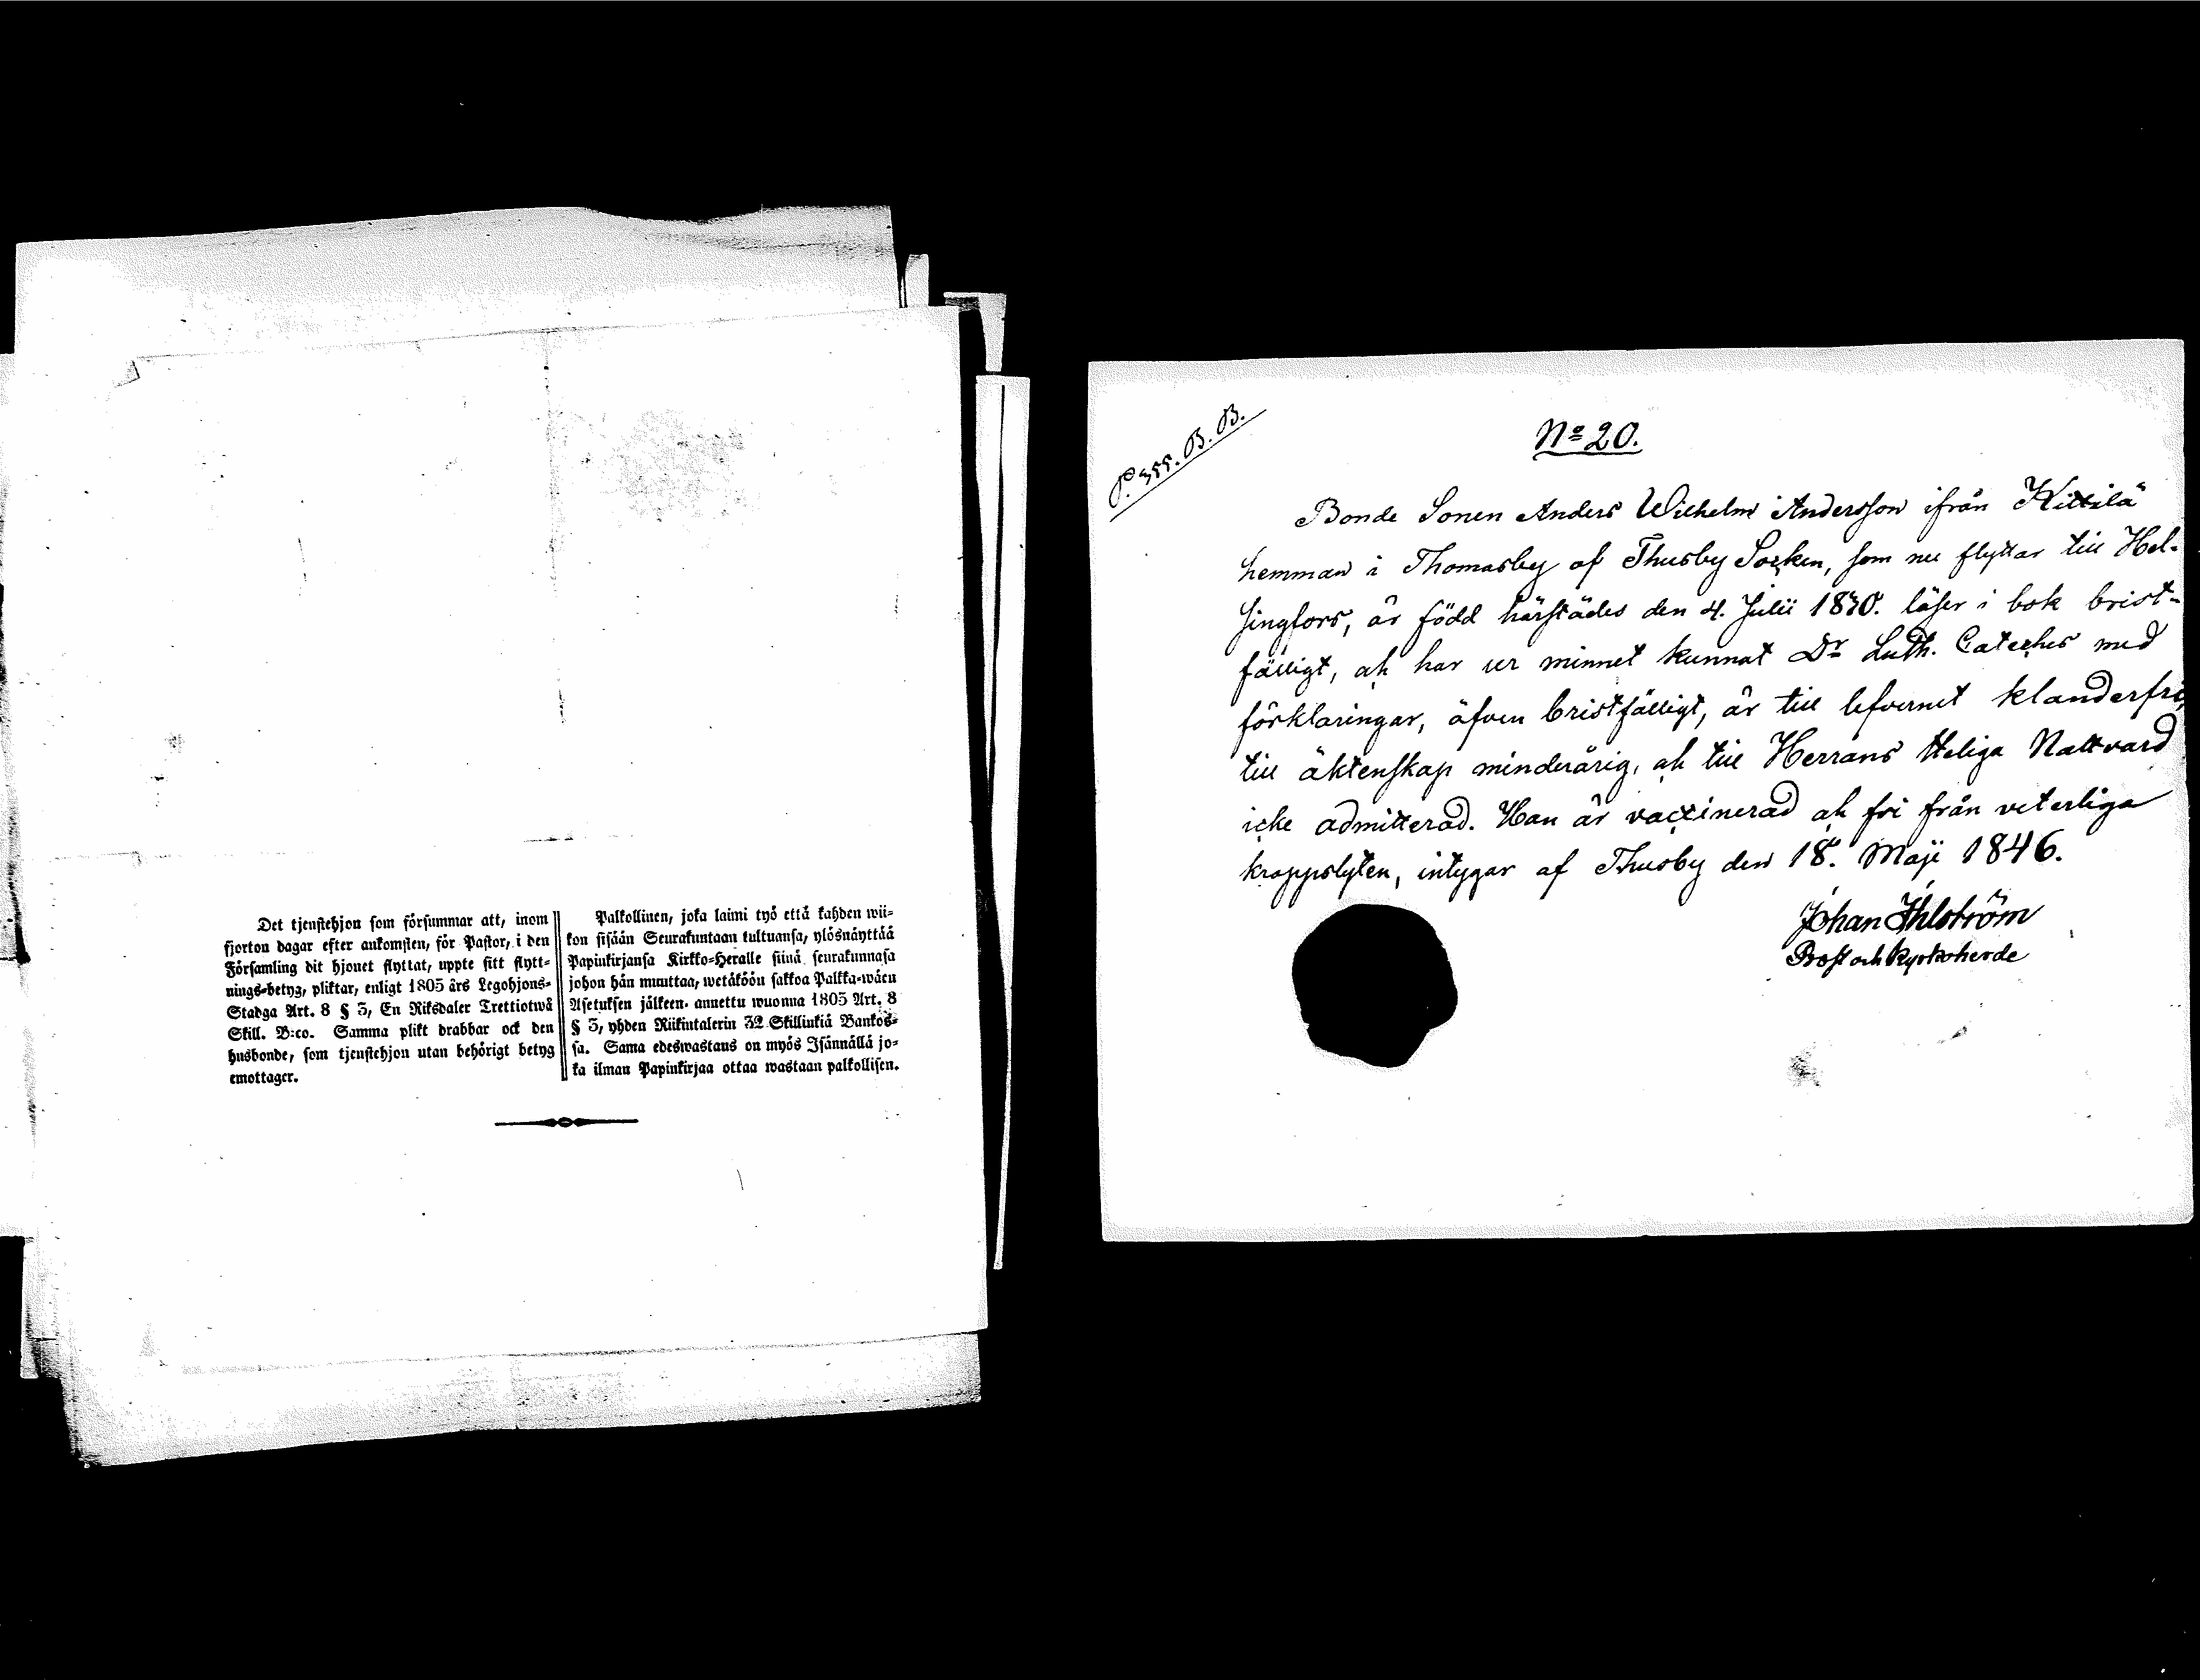 Det tjenstehjon som försummar att, inom
fjorton dagar efter ankomsten, för Pastor, i den
Församling dit hjonet flyttat, uppte sitt flytt-
nings-betyg, pliktar, enligt 1805 års Legohjons-
Stadga Art. 8 § 3, En Riksdaler Trettiotwå
Skill. B:co. Samma plikt drabbar ock den
husbonde, som tjenstehjon utan behörigt betyg
emottager.
Palkollinen, joka laimi työ että kahden wii-
kon sisään Seurakuntaan tultuansa, ylösnäyttää
Papinkirjansa Kirkko-Heralle siinä seurakunnasa
johon hän muuttaa, wetäköön sakkoa Palkka-wäen
Asetuksen jälkeen annettu wuonna 1805 Art. 8
§ 3, yhden Riikintalerin 32 Skillinkiä Bankos-
sa. Sama edeswastaus on myös Isännällä jo-
ka ilman Papinkirjaa ottaa wastaan palkollisen.
P. 355. B. B.
No 20.
Bonde Sonen Anders Wilhelm Andersson ifrån Kittilä
hemman i Thomasby af Thusby Socken, som nu flyttar till Hel-
singfors, är född härstädes den 4. Julii 1830. läser i bok brist-
fälligt, och har ur minnet kunnat Dr Luth. Cateches med
förklaringar, äfven bristfälligt, är till lefvernet klanderfri,
till äktenskap minderårig, och till Herrans Heliga Nattvard
icke admitterad. Han är vaccinerad och fri från veterliga
kroppslyten, intygar af Thusby den 18. Maji 1846.
Johan Ahlström
Prost och Kyrkoherde